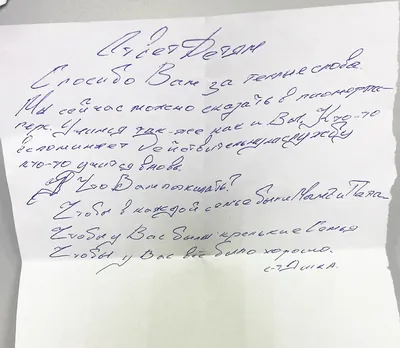 Привет Детям
Спосибо Вам за теплые слова.
Мы сейчас можно сказать в
парк. Учимся так-же как и Вы. Кто-то
вспоминает действительную службу
кто-то учится вновь.
Что Вам пожелать?
Чтобы в каждой семье были Мама и Папа
Чтобы у Вас были крепкие Семья
Чтобы у Вас всё было хорошо.